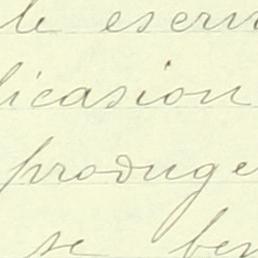 le escri
licasion
produge
se ben